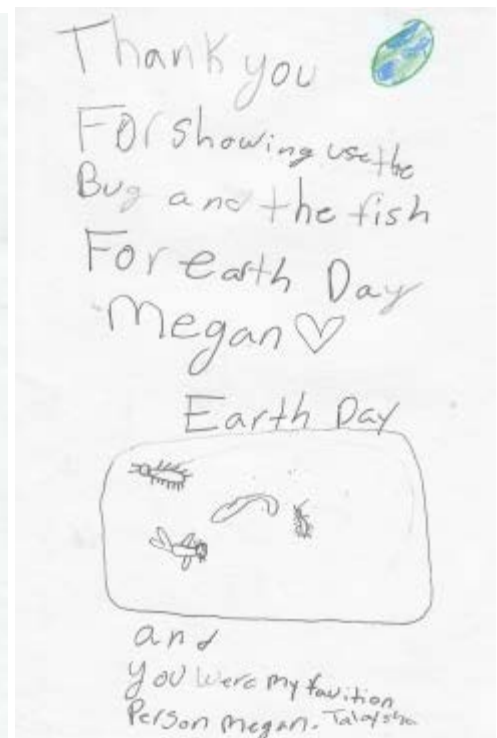 Thank you
For showing use the
Bug and the fish
For earth Day
Megan
Earth Day
and
you were my favition
Person megan.